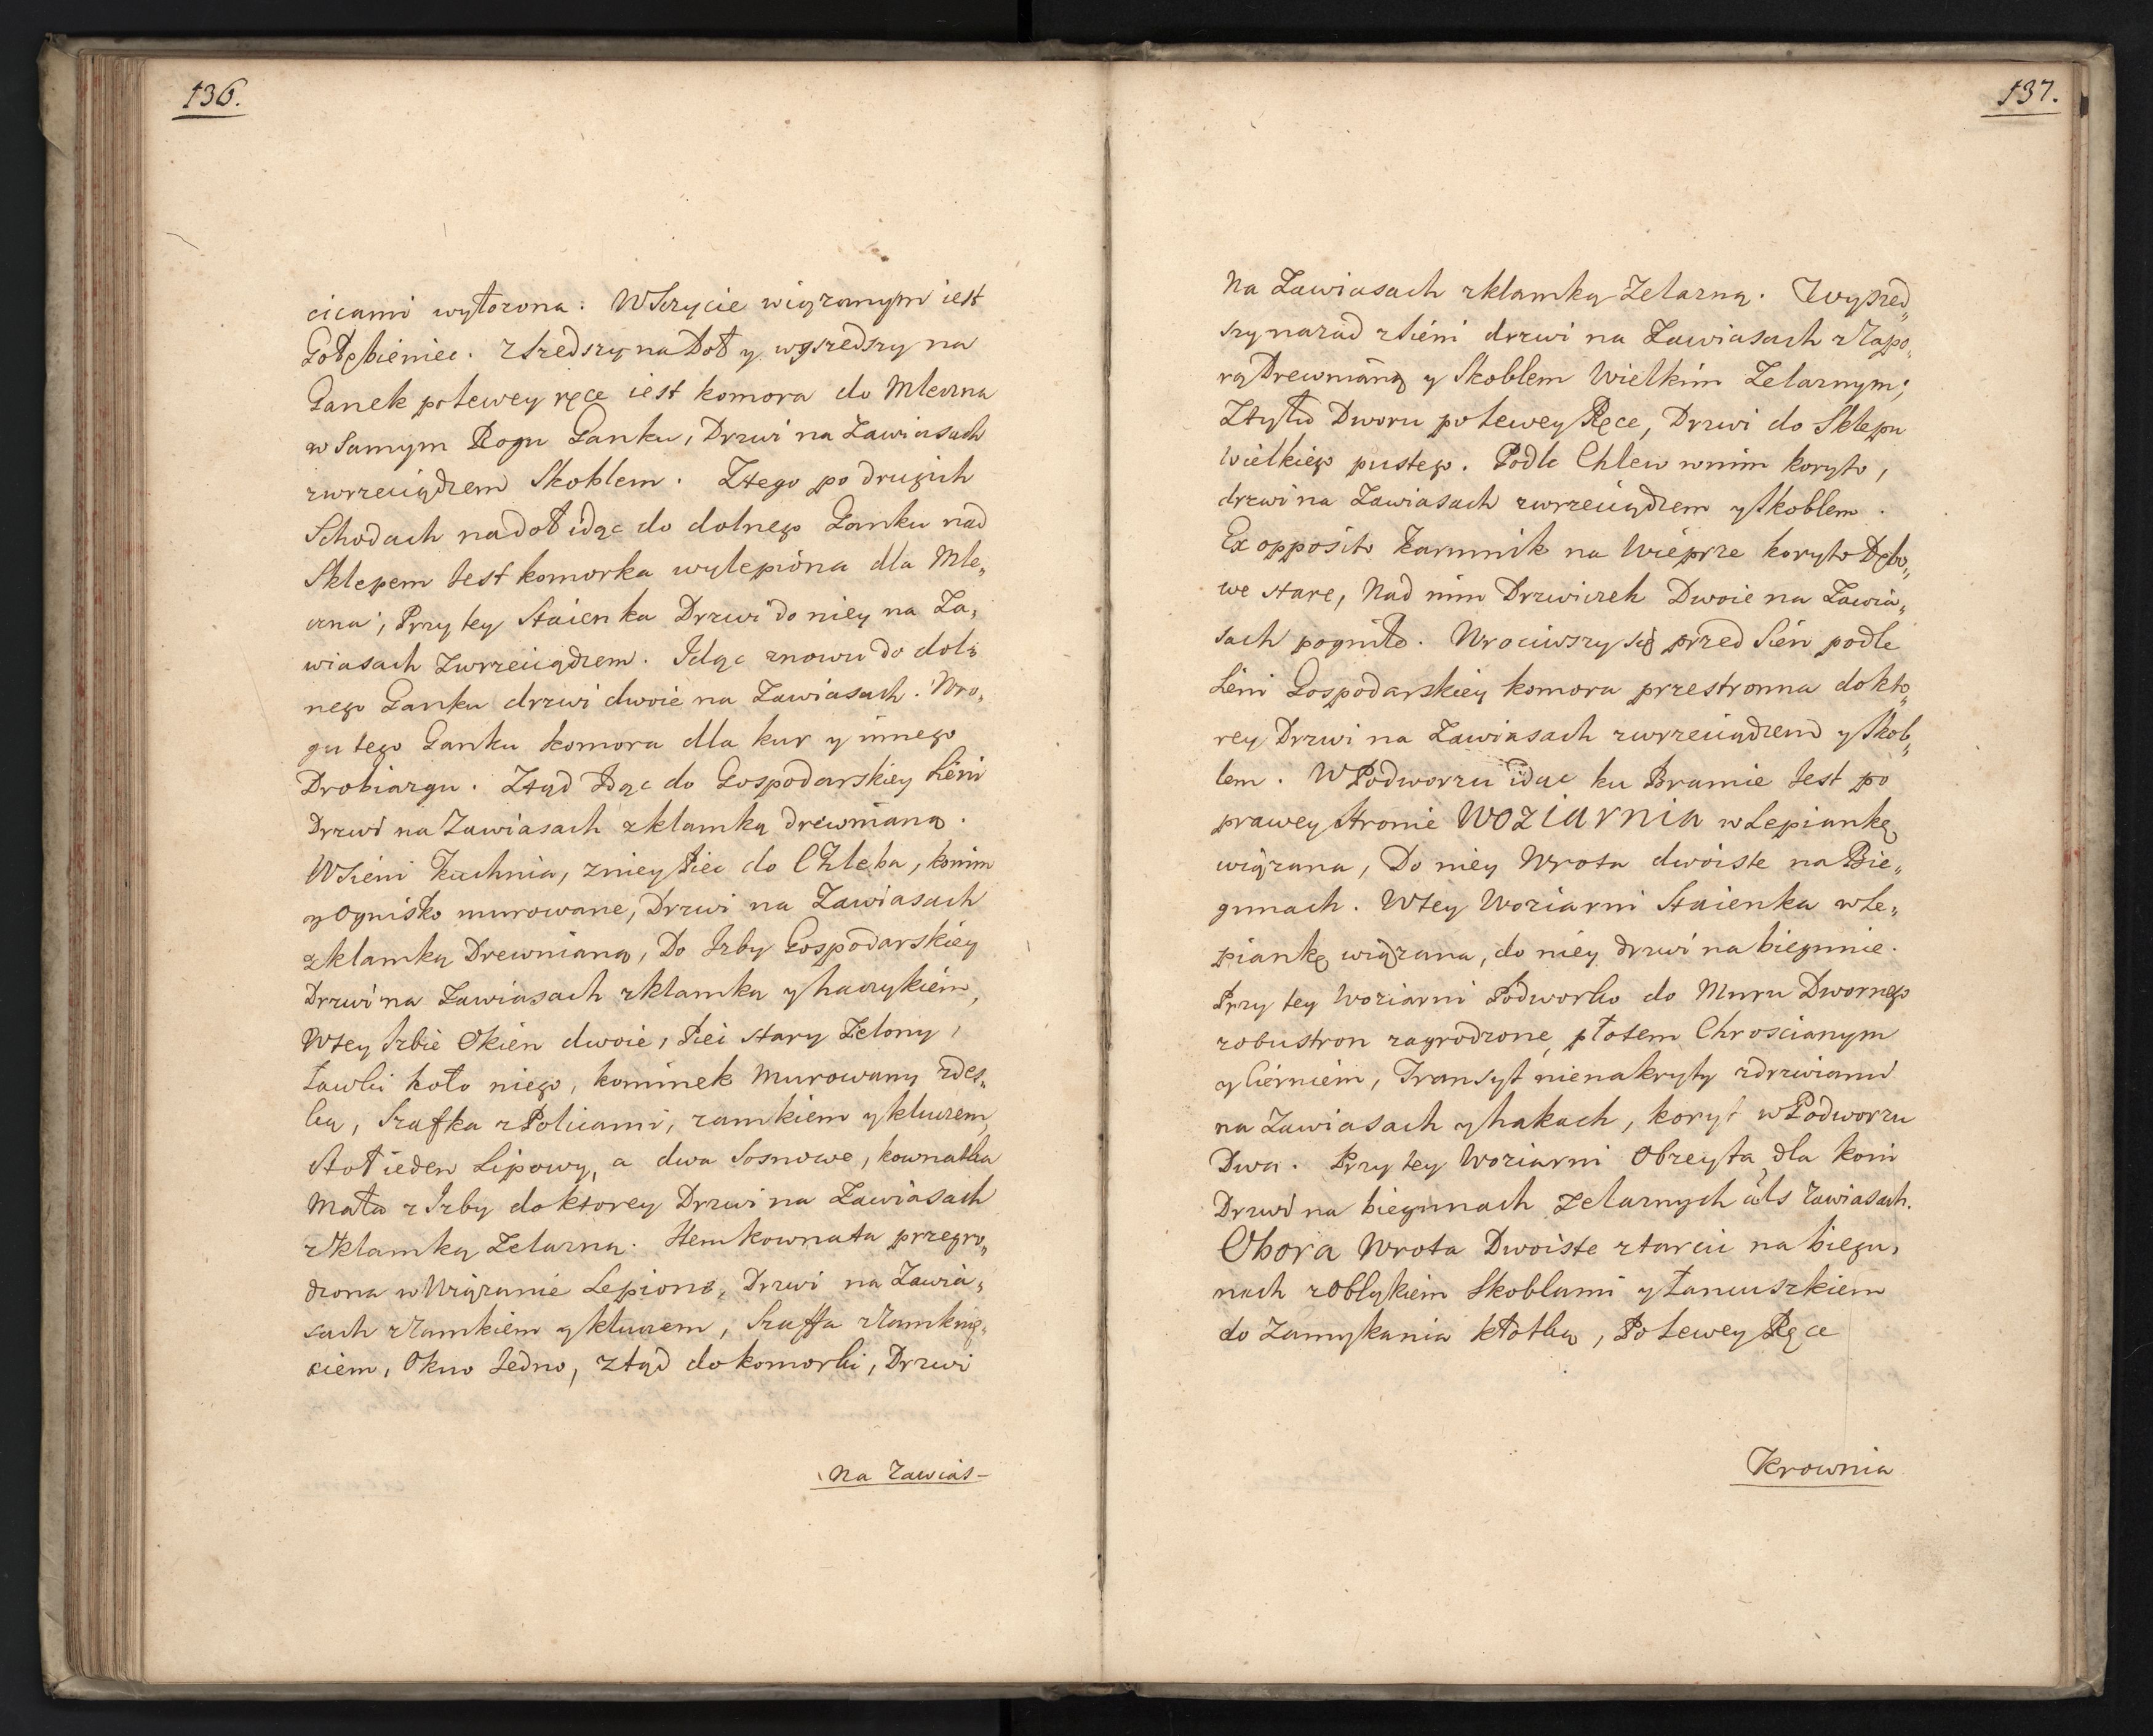 136.
cicami wyłozona: WSzycie wiązanym iest
Gołębieniec. Zszedszy na Doł y wyszedszy na
Ganek po lewey ręce iest komora do Mleczna
w Samym Rogu Ganku, Drzwi na Zawiasach
zwrzeciądzem Skoblem. Ztego po drugich
Schodach nadoł idąc do dolnego Ganku nad
Sklepem Jest komorka wylepiona dla Mle„
czna, Przy tey Staienka Drzwi do niey na Za„
wiasach Zwrzeciądzem. Idąc znowu do dol„
nego Ganku drzwi dwoie na Zawiasach. Wro„
gu tego Ganku komora dla kur y innego
Drobiazgu. Ztąd Idąc do Gospodarskiey Sieni
Drzwi na Zawiasach zklamką drewnianą.
WSieni Kuchnia, zniey Piec do Chleba, komin
y Ognisko murowane, Drzwi na Zawiasach
zklamką Drewnianą, Do Izby Gospodarskiey
Drzwi na Zawiasach zklamką y haczykiem,
Wtey Izbie Okien dwoie, Piec stary Zelony,
ławki koło niego, kominek Murowany zdes„
ką, Szafka zPolicami, zamkiem y kluczem,
Stoł ieden Lipowy, a dwa Sosnowe, kownatka
Mała z Izby do ktorey Drzwi na Zawiasach
zKlamką Zelazną. Item kownata przegro„
dzona w Wiązanie Lepione, Drzwi na Zawia„
sach zZamkiem y kluczem, Szaffa zZamknię„
ciem, Okno Jedno, ztąd do komorki, Drzwi
na zawias–
137.
Na Zawiasach zklamką Zelazną. Zwyszed„
szy nazad zSieni drzwi na Zawiasach zZapo„
rą Drewnianą y Skoblem Wielkim Zelaznym;
Ztyłu Dworu po lewey Ręce, Drzwi do Sklepu
Wielkiego pustego. Podle Chlew wnim koryto,
drzwi na Zawiasach zwrzeciądzem y Skoblem.
Ex opposito Karmnik na Wieprze koryto Dębo„
we stare, Nad nim Drzwiczek Dwoie na Zawia„
sach pogniło. Wrociwszy się przed Sień podle
Sieni Gospodarskiey komora przestronna do kto„
rey Drzwi na Zawiasach zwrzeciądzem y Skob„
lem. WPodworzu idąc ku Bramie Jest po
prawey Stronie WOZIARNIA w Lepiankę
wiązana, Do niey Wrota dwoiste na Bie„
gunach. Wtey Woziarni Staienka w Le„
piankę wiązana, do niey drzwi na biegunie.
Przy tey Woziarni Podworko do Muru Dwornego
zobustron zagrodzone płotem Chroscianym
y Cierniem, Transyt nienakryty zdrzwiami
na Zawiasach y hakach, koryt wPodworzu
Dwa. Przy tey Woziarni Obreyta dla koni
Drzwi na biegunach Zelaznych als Zawiasach.
Obora Wrota Dwoiste ztarcic na biegu„
nach zObłąkiem Skoblami y łancuszkiem
do Zamykania kłotką, Po lewey Ręce
Krownia